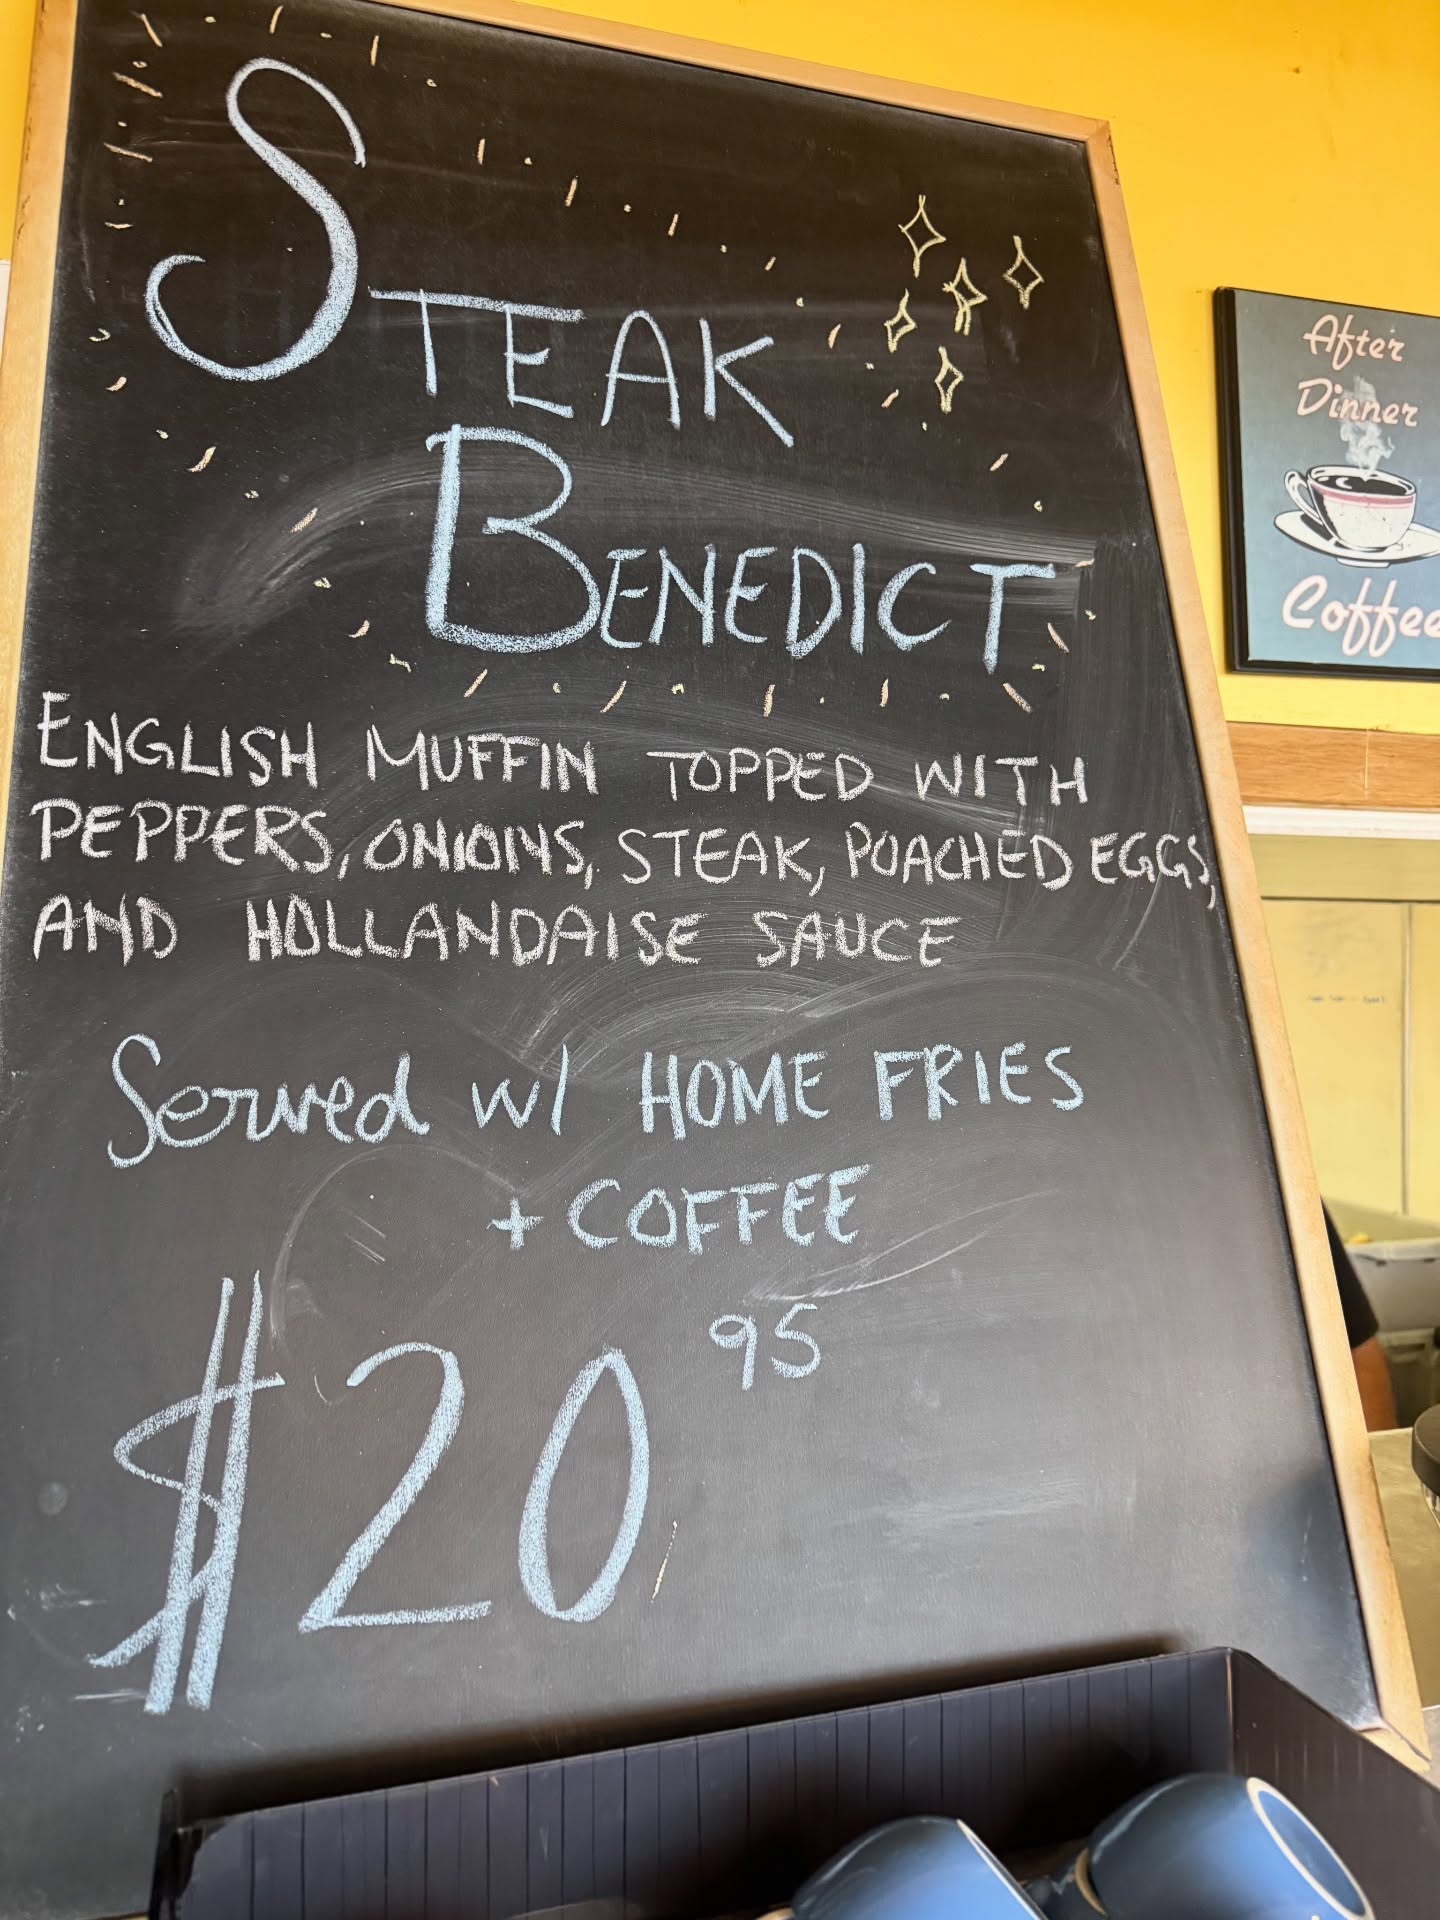 STEAK
BENEDICT
ENGLISH MUFFIN TOPPED WITH
PEPPERS, ONIONS, STEAK, POACHED EGGS,
AND HOLLANDAISE SAUCE
Served w/ HOME FRIES
+ COFFEE
$20 95
After
Dinner
Coffee